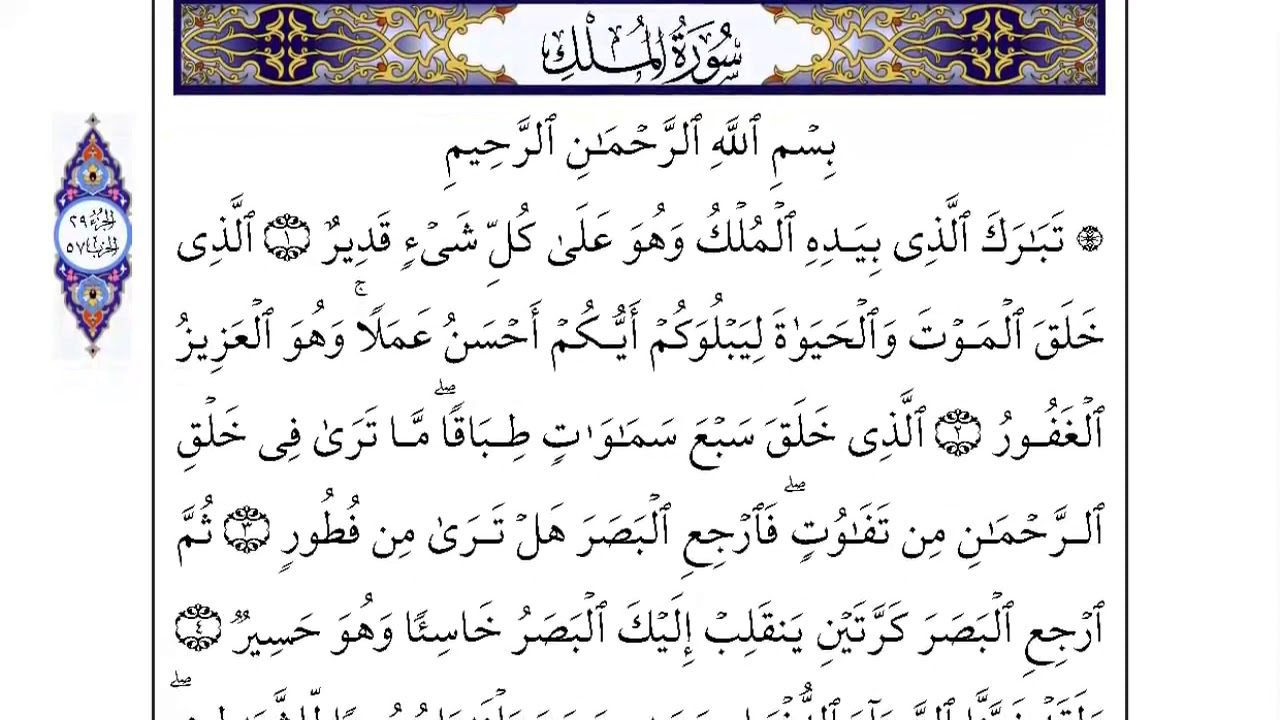 سُورَةُ الْمُلْكِ
بِسْمِ ٱللَّهِ ٱلرَّحْمَـٰنِ ٱلرَّحِيمِ
الجزء ٢٩
الحزب ٥٧
۞ تَبَـٰرَكَ ٱلَّذِى بِيَدِهِ ٱلْمُلْكُ وَهُوَ عَلَىٰ كُلِّ شَىْءٍ قَدِيرٌ ١ ٱلَّذِى
خَلَقَ ٱلْمَوْتَ وَٱلْحَيَوٰةَ لِيَبْلُوَكُمْ أَيُّكُمْ أَحْسَنُ عَمَلًا ۚ وَهُوَ ٱلْعَزِيزُ
ٱلْغَفُورُ ٢ ٱلَّذِى خَلَقَ سَبْعَ سَمَـٰوَٰتٍ طِبَاقًا ۖ مَّا تَرَىٰ فِى خَلْقِ
ٱلرَّحْمَـٰنِ مِن تَفَـٰوُتٍ ۖ فَٱرْجِعِ ٱلْبَصَرَ هَلْ تَرَىٰ مِن فُطُورٍ ٣ ثُمَّ
ٱرْجِعِ ٱلْبَصَرَ كَرَّتَيْنِ يَنقَلِبْ إِلَيْكَ ٱلْبَصَرُ خَاسِئًا وَهُوَ حَسِيرٌ ٤